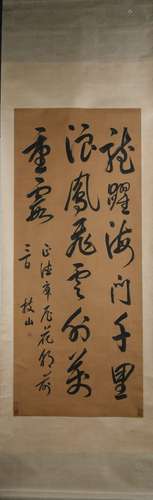 龍躍海門千里
浪鳳飛雲外萬
重霞
正德年花朝前
三日
枝山